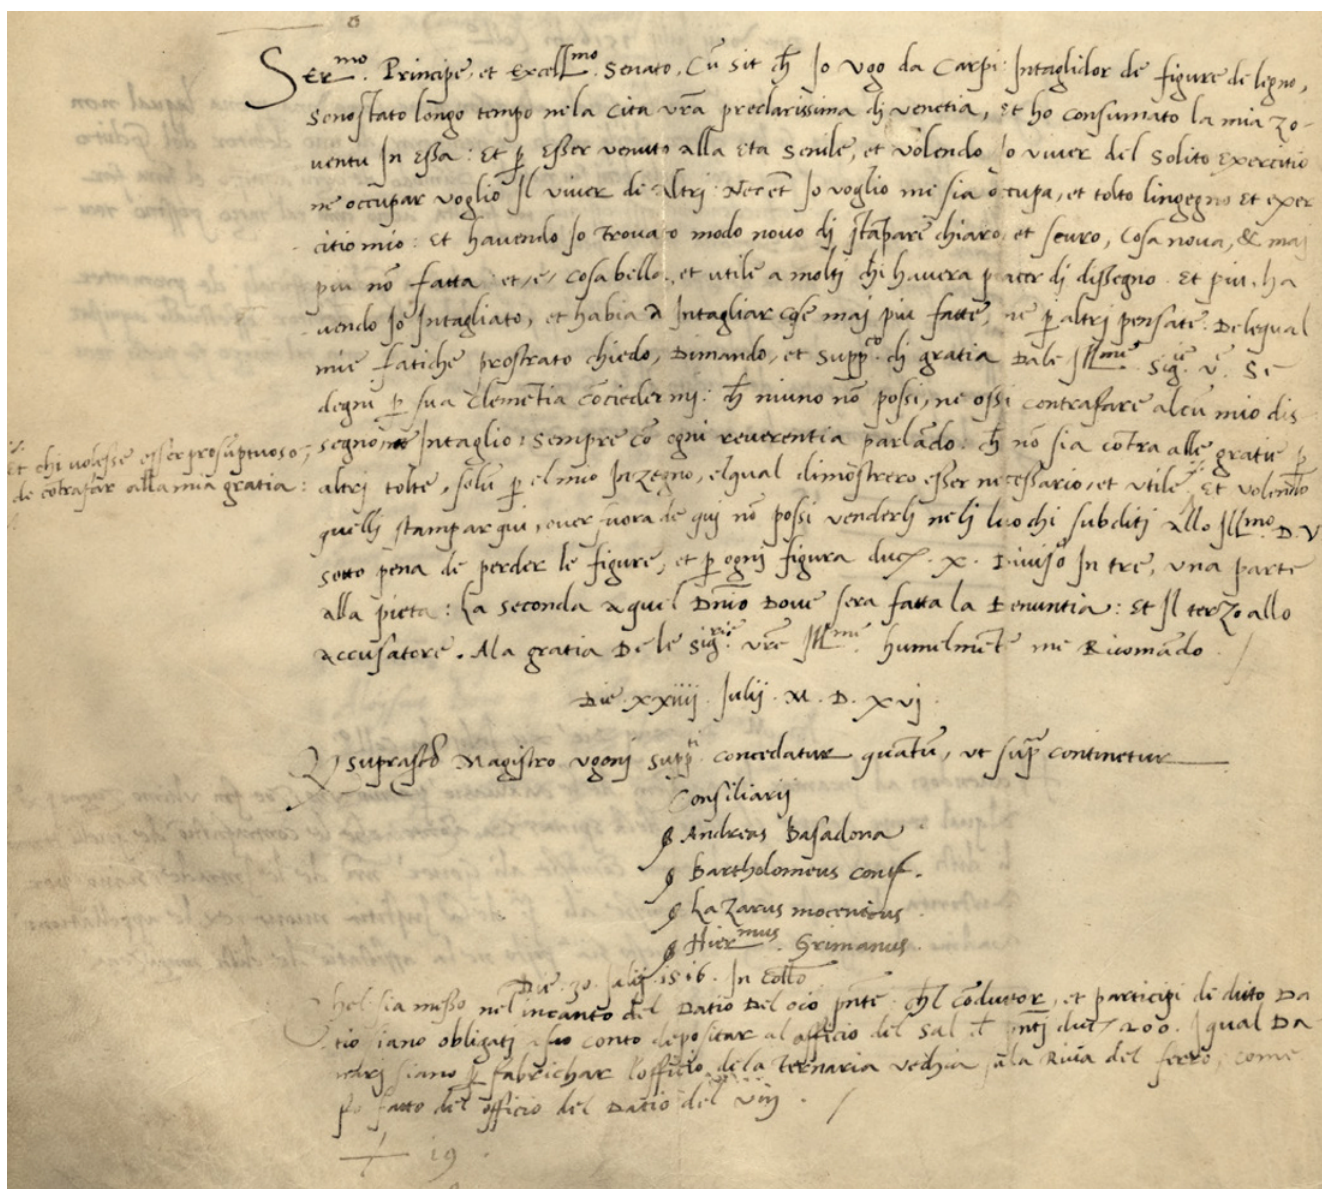 Ser.mo Principe, et Excell.mo Senato, Cu sit ch Io Ugo da Carpi Intagliador de figure de legno,
Sono stato longo tempo nela Cita vra preclarissima di venetia, et ho consumato la mia zo-
ventu In Essa: Et p Esser venuto alla Eta Senile, et volendo Io viver del Solito Exercitio
ne occupar voglio Il viver de Altri: Io voglio me sia occupa, et tolto lingegno Et exer
citio mio: Et havendo Io Trovato modo novo di stapare chiaro et scuro, Cosa nova, & mai
piu no fatta: et /e/ cosa bella, et utile a molti chi havera piacer di dissegno. Et piu, ha
vendo Io Intagliato, et habia A Intagliar cose mai piu fatte, ne p altri pensate. Delequal
mie fatiche prostrato chiedo, Dimando, et Supp.co di gratia Dale Ill.me Sig.ie V. Se
degni p sua Clemetia cociedermi: ch niuno no possi, ne ossi contrafare alcu mio dis
segno, ne Intaglio: Sempre co ogni reverentia parlado: ch no sia cotra alle gratie p
Et chi volesse esser prosuptuoso,
de cotrafar alla mia gratia:
altri tolte, solu p el mio Inzegno, elqual dimostrero esser necessario, et utile: Et volendo
quelli stampar qui, over fuora de qui no possi venderli neli luochi subditi Allo Ill.mo D. V
sotto pena de perder le figure, et p ogni figura duc. X. Diviso In tre, una parte
alla pieta: La seconda a quel Dnio Dove sera fatta la Denuntia: Et Il terzo allo
accusatore. Ala gratia Dele Sig.rie vre Ill.me humelmete me Ricomado.
Die. XXIIII. Iulij. M. D. XVI.
Q suprasto Magistro Ugoni Supp.ti concedatur quatu, ut sup.a continetur
Consiliarij
Andreas Basadona
Bartholomeus cont.
Lazarus mocenicus.
Hier.mus Grimanus.
Die. 30. Iulij. 1516. In Collo
Chel sia messo nel incanto del Datio Del oio pnte. chl coductor, et participi de dito Da
tio siano obligati a suo conto depositar al officio del Sal duc 200. I qual Da
nari siano p fabrichar l officio dela Ternaria vechia, ala Riva del ferro, come
fo fatto del officio del Datio del vin.
19.